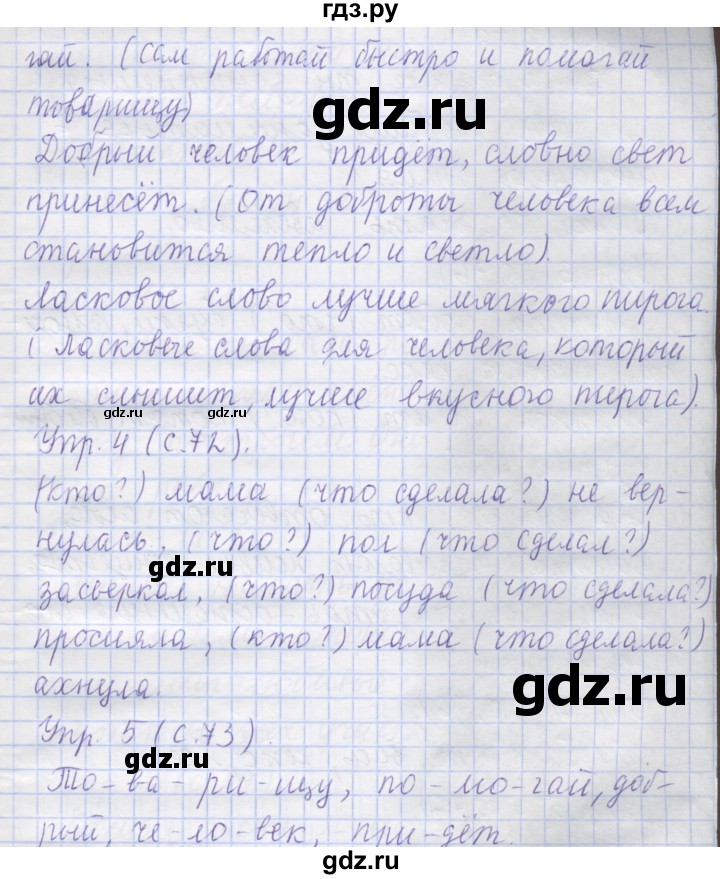 гдз.ру
гай. (сам работай быстро и помогай
товарищу)
gdz.ru
Добрый человек придёт, словно свет
принесёт. (От доброты человека всем
становится тепло и светло).
Ласковое слово лучше мягкого пирога.
( Ласковые слова для человека, который
их слышит, лучше вкусного пирога).
gdz.ru gdz.ru
Упр. 4 (с. 72).
(кто?) мама (что сделала?) не вер-
нулась, (что?) пол (что сделал?)
gdz.ru
засверкал, (что?) посуда (что сделала?)
просияла, (кто?) мама (что сделала?)
ахнула.
gdz.ru
Упр. 5 (с. 73).
То-ва-ри-щу, по-мо-гай, доб-
рый, че-ло-век, при-дёт.
gdz.ru